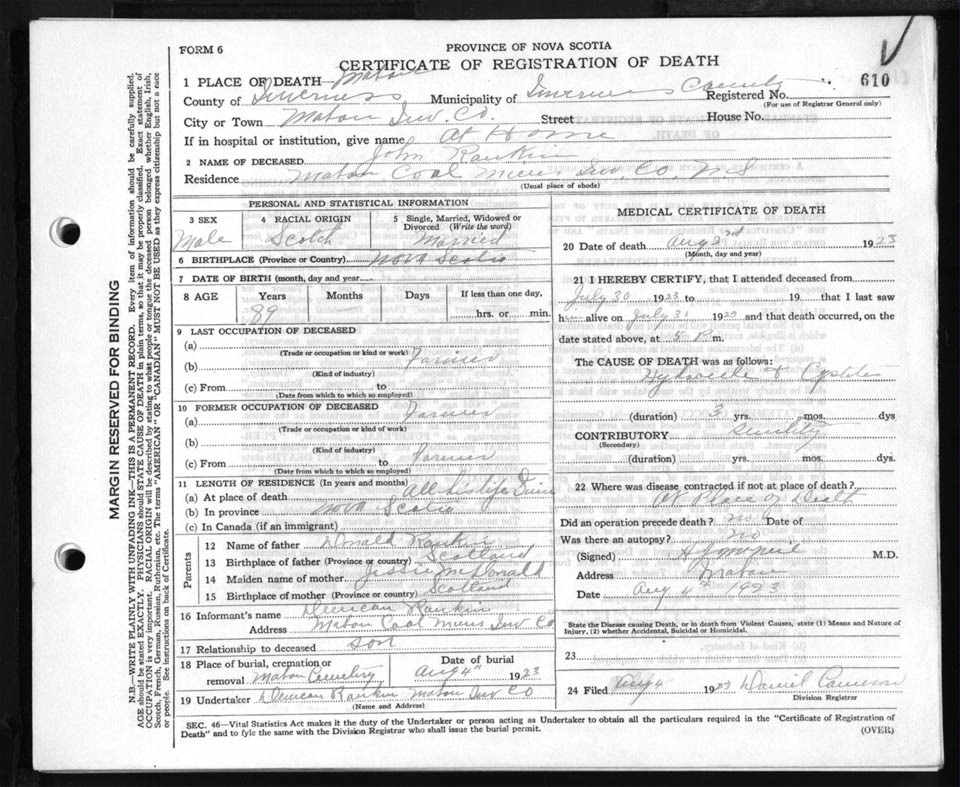 FORM 6
PROVINCE OF NOVA SCOTIA
CERTIFICATE OF REGISTRATION OF DEATH
610
1 PLACE OF DEATH Mabou
County of Inverness Municipality of Inverness County Registered No.
(For use of Registrar General only)
City or Town Mabou Inv. Co. Street House No.
If in hospital or institution, give name At Home
2 NAME OF DECEASED John Rankin
Residence Mabou Coal Mines Inv. Co. N S
(Usual place of abode)
PERSONAL AND STATISTICAL INFORMATION
3 SEX
Male
4 RACIAL ORIGIN
Scotch
5 Single, Married, Widowed or Divorced (Write the word)
Married
6 BIRTHPLACE (Province or Country) Nova Scotia
7 DATE OF BIRTH (month, day and year)
8 AGE Years Months Days If less than one day,
89 hrs. or min.
9 LAST OCCUPATION OF DECEASED
(a)
(Trade or occupation or kind or work)
(b) Farmer
(Kind of industry)
(c) From to
(Date from which to which so employed)
10 FORMER OCCUPATION OF DECEASED
(a) Farmer
(Trade or occupation or kind of work)
(b)
(Kind of industry)
(c) From to Farmer
(Date from which to which so employed)
11 LENGTH OF RESIDENCE (In years and months)
(a) At place of death All his life
(b) In province Nova Scotia
(c) In Canada (if an immigrant)
Parents
12 Name of father Donald Rankin
13 Birthplace of father (Province or country) Scotland
14 Maiden name of mother Jessie McDonald
15 Birthplace of mother (Province or country) Scotland
16 Informant's name Duncan Rankin
Address Mabou Coal Mines Inv Co
17 Relationship to deceased son
18 Place of burial, cremation or removal Mabou Cemetery Date of burial Aug 4th 1923
19 Undertaker Duncan Rankin Mabou Inv Co
(Name and Address)
MEDICAL CERTIFICATE OF DEATH
20 Date of death Aug 2nd 1923
(Month, day and year)
21 I HEREBY CERTIFY, that I attended deceased from
July 30 1923 to 19 that I last saw
h alive on July 31 1923 and that death occurred, on the
date stated above, at 5 P m.
The CAUSE OF DEATH was as follows:
(duration) 3 yrs. mos. dys
CONTRIBUTORY Senility
(Secondary)
(duration) yrs. mos. dys.
22 Where was disease contracted if not at place of death?
At Place of Death
Did an operation precede death? no Date of
Was there an autopsy? no
(Signed) M.D.
Address Mabou
Date Aug 4th 1923
State the Disease causing Death, or in death from Violent Causes, state (1) Means and Nature of Injury, (2) whether Accidental, Suicidal or Homicidal.
23
24 Filed Aug 4 1923 Daniel Cameron
Division Registrar
SEC. 46—Vital Statistics Act makes it the duty of the Undertaker or person acting as Undertaker to obtain all the particulars required in the "Certificate of Registration of
Death" and to fyle the same with the Division Registrar who shall issue the burial permit.
(OVER)
MARGIN RESERVED FOR BINDING
N.B.—WRITE PLAINLY WITH UNFADING INK—THIS IS A PERMANENT RECORD. Every item of information should be carefully supplied.
AGE should be stated EXACTLY. PHYSICIANS should STATE CAUSE OF DEATH in plain terms, so that it may be properly classified. Exact statement of
OCCUPATION is very important. RACIAL ORIGIN will be described by stating to what people or tongue the deceased person belonged whether English, Irish,
Scotch, French, German, Russian, Ruthenian, etc. The terms "AMERICAN" OR "CANADIAN" MUST NOT BE USED as they express citizenship but not a race
or people. See instructions on back of Certificate.